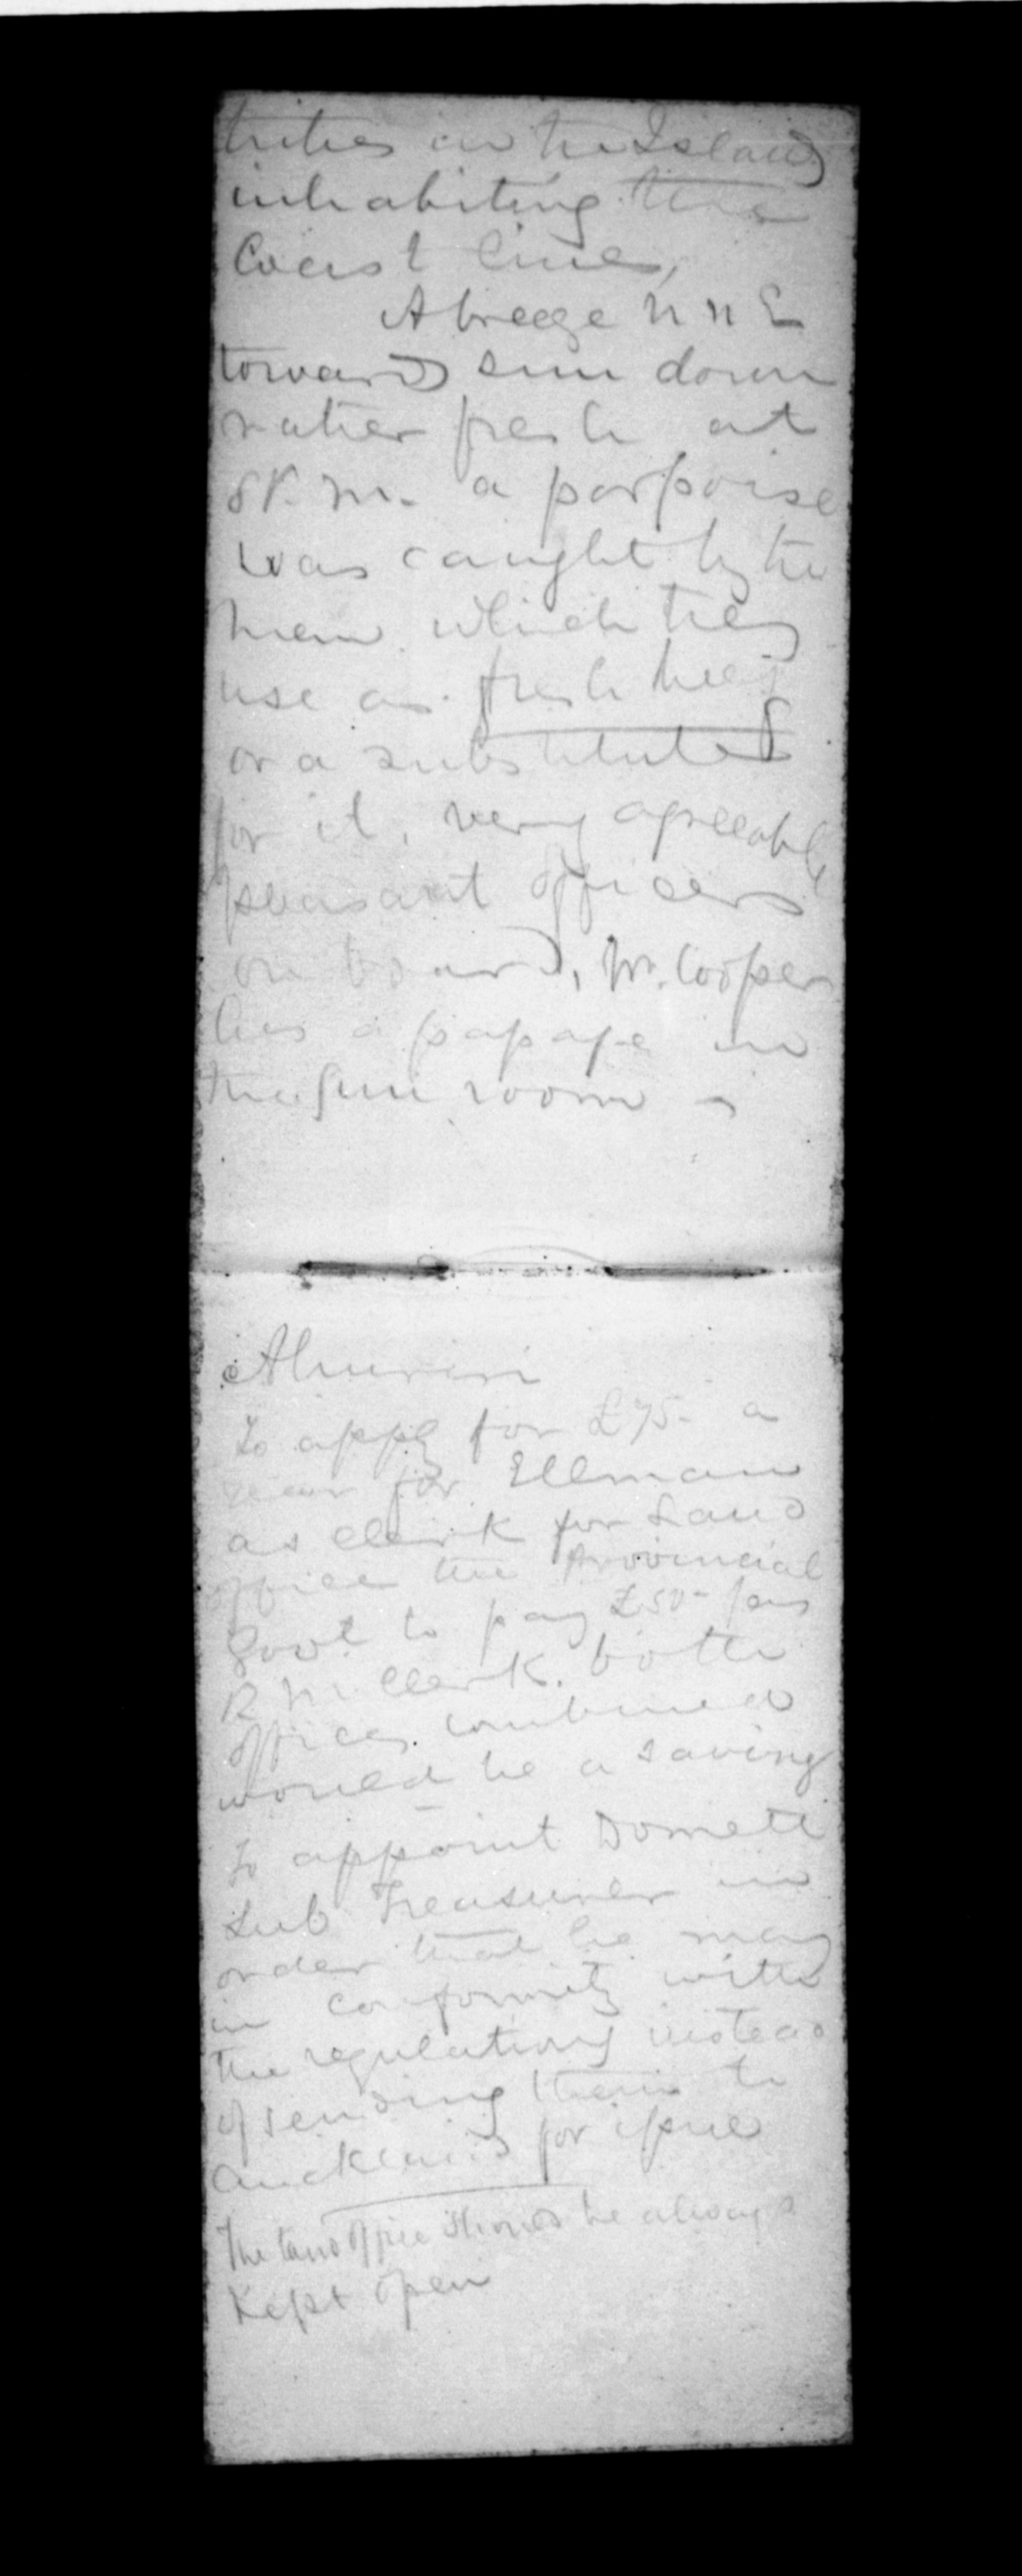 tribes in the Island
inhabiting the
Coast line,
A breeze N N E
towards sun down
rather fresh at
8 P.M. a porpoise
was caught by the
men which they
use as fresh beef
or a substitute
for it, very agreeable
pleasant officers
on board, Mr. Cooper
has a passage in
the Gun room
Ahuriri
To apply for £75- a
year for Ellman
as clerk for Land
office the Provincial
Govt to pay £50- for
R M clerk. both
offices combined
would be a saving
To appoint Domett
Sub Treasurer in
order that he may
in conformity with
the regulations instead
of sending them to
Auckland for issue
The Land office should be always
Kept open